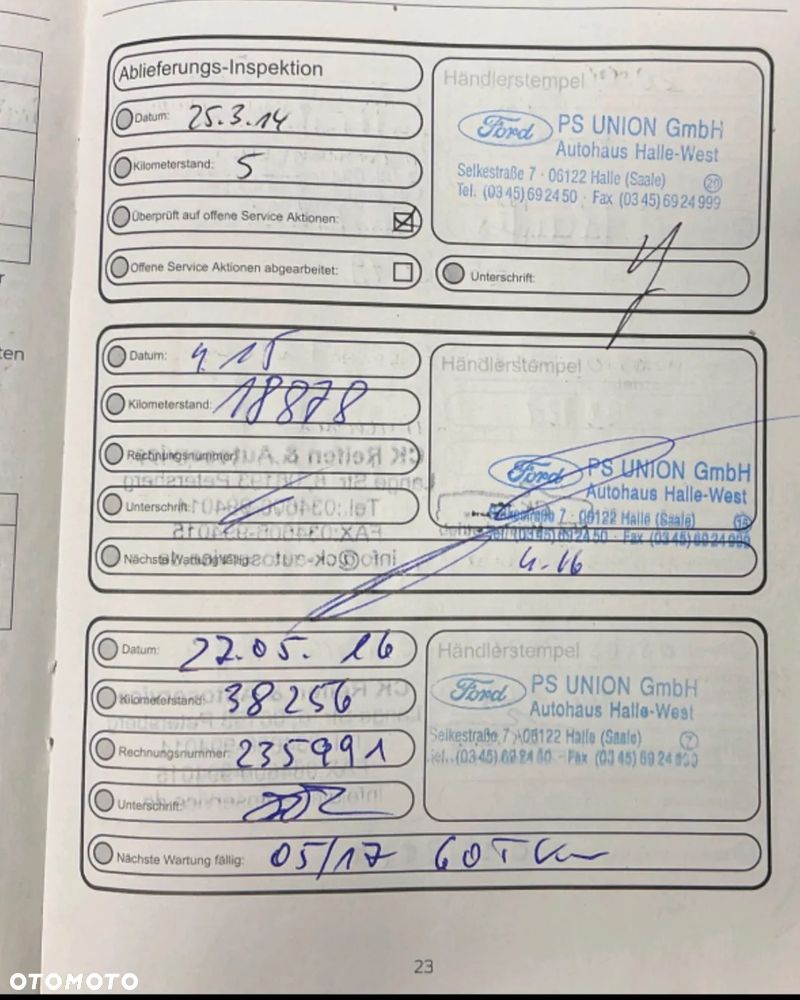 Ablieferungs-Inspektion
Datum: 25.3.14
Kilometerstand: 5
Überprüft auf offene Service Aktionen:
Offene Service Aktionen abgearbeitet:
Händlerstempel
Ford PS UNION GmbH
Autohaus Halle-West
Selkestraße 7 · 06122 Halle (Saale)
Tel. (03 45) 69 24 50 · Fax (03 45) 69 24 999
Unterschrift:
Datum: 4.15
Kilometerstand: 18878
Rechnungsnummer:
Unterschrift:
Nächste Wartung fällig: 4.16
Händlerstempel
Ford PS UNION GmbH
Autohaus Halle-West
Selkestraße 7 · 06122 Halle (Saale)
Tel. (03 45) 69 24 50 · Fax (03 45) 69 24 999
Datum: 27.05.16
Kilometerstand: 38256
Rechnungsnummer: 235991
Unterschrift:
Nächste Wartung fällig: 05/17 60 TKm
Händlerstempel
Ford PS UNION GmbH
Autohaus Halle-West
Selkestraße 7 · 06122 Halle (Saale)
Tel. (03 45) 69 24 50 · Fax (03 45) 69 24
23
OTOMOTO